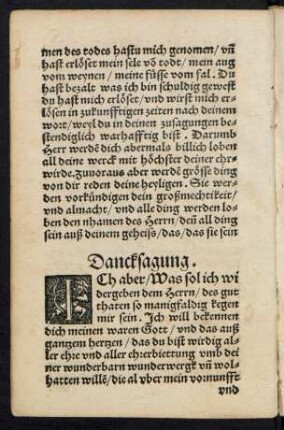 men des todes hastu mich genomen/ vñ
hast erlöset mein sele võ todt/ mein aug
vom weynen/ meine füsse vom fal. Du
hast bezalt was ich bin schuldig gewest
du hast mich erlöset/ vnd wirst mich er-
lösen in zukunfftigen zeiten nach deinem
wort/ weyl du in deinen zusagungen be-
stendiglich warhafftig bist. Darumb
Herr werdẽ dich abermals billich loben
all deine werck mit höchster deiner ehr-
wirde. Zuuoraus aber werdẽ grösse ding
von dir reden deine heyligen. Sie wer-
den vorkündigen dein großmechtikeit/
vnd almacht/ vnd alle ding werden lo-
ben den nhamen des Herrn/ deñ all ding
sein auß deinem geheiss/ das/ das sie sein
Dancksagung.
ICh aber/ Was sol ich wi
dergeben dem Herrn/ des gut
thaten so manigfaldig kegen
mir sein. Ich will bekennen
dich meinen waren Gott/ vnd das auß
gantzem hertzen/ das du bist wirdig al-
ler ehre vnd aller ehrerbiettung vmb dei
ner wunderbarn wunderwergk vñ wol-
hatten willẽ/ die al vber mein vornunfft
vnd